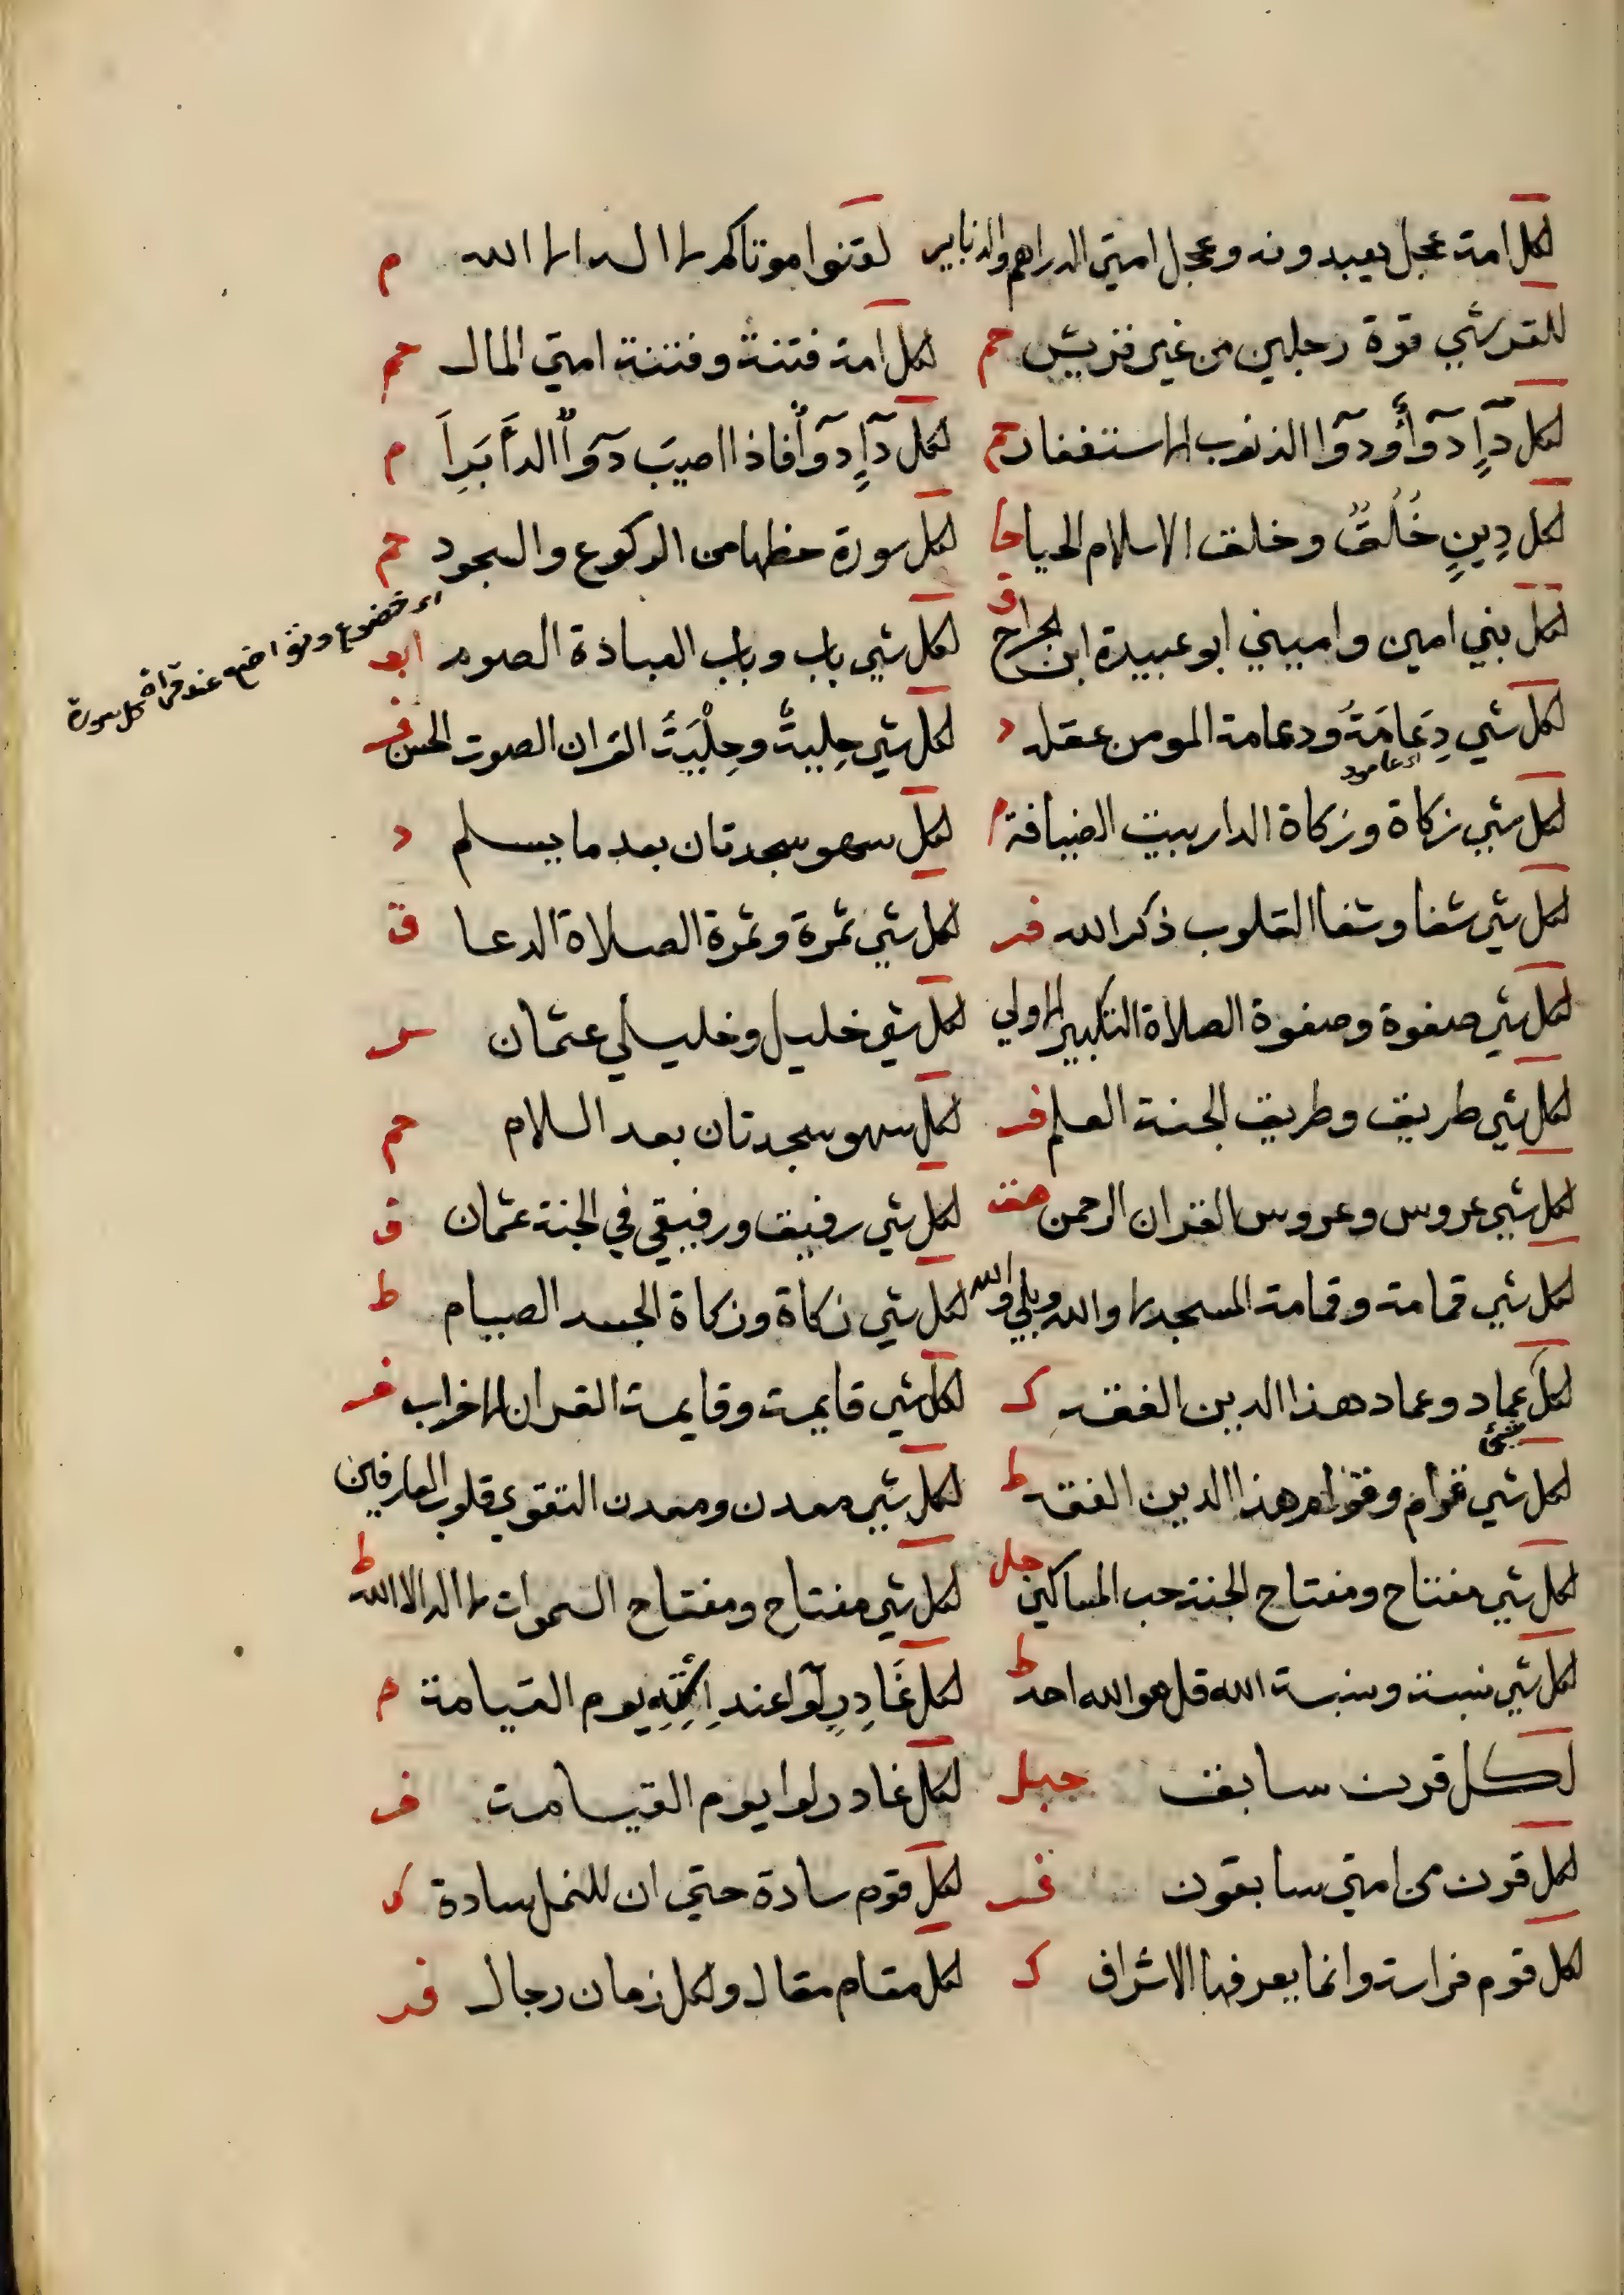 لكل امة عجل يعبدونه وعجل امتي الدراهم والدنانير لقنوا موتاكم لا اله الا الله م
للقرشي قوة رجلين من غير قريش حم لكل امة فتنة وفتنة امتي المال حم
لكل دآءٍ دوآ ودوآ الذنوب الاستغفار لكل دآءٍ دوآ فاذا اصيب دوآ الدآ برأ م
لكل دِينٍ خُلُقٌ وخلق الاسلام الحيا لكل سورة حظها من الركوع والسجود حم
لكل نبي امين واميني ابو عبيدة ابن الجراح ق لكل شي باب وباب العبادة الصوم
خضوع وتواضع عند قراة كل سورة
لكل شي دِعَامَةٌ ودعامة المومن عقله د لكل شي حِليةٌ وحِلْيَةُ القران الصوت الحسن
لكل شي زكاة وزكاة الدار بيت الضيافة لكل سهو سجدتان بعد ما يسلم د
لكل شي شفا وشفا القلوب ذكر الله فر لكل شي ثمرة وثمرة الصلاة الدعا ق
لكل شي صفوة وصفوة الصلاة التكبير الاولي لكل خليل وخليلي عثمان
لكل شي طريق وطريق الجنة العلم فر لكل سهو سجدتان بعد السلام حم
لكل شي عروس وعروس القران الرحمن هق لكل شي رفيق ورفيقي في الجنة عثمان ق
لكل شي قمامة وقمامة المسجد لا والله وبلي والله لكل شي زكاة وزكاة الجسد الصيام ط
لكل شي عماد وعماد هذا الدين الفقه ك لكل شي قايمة وقايمة القران
لكل شي قوام وقوام هذا الدين الفقه ط لكل شي معدن ومعدن التقوي قلوب العارفين ط
لكل شي مفتاح ومفتاح الجنة حب المساكين لكل شي مفتاح ومفتاح السموات لا اله الا الله
لكل شي نسبة ونسبة الله قل هو الله احد ط لكل غَادِرٍ لوآ عند يوم القيامة م
لكل قرن سابق لكل غادر لوا يوم القيامة
لكل قرن من امتي سابقون لكل قوم سادة حتي ان للنحل سادة
لكل قوم فراسة وانما يعرفها الاشراف ك لكل مقام مقال ولكل زمان رجال